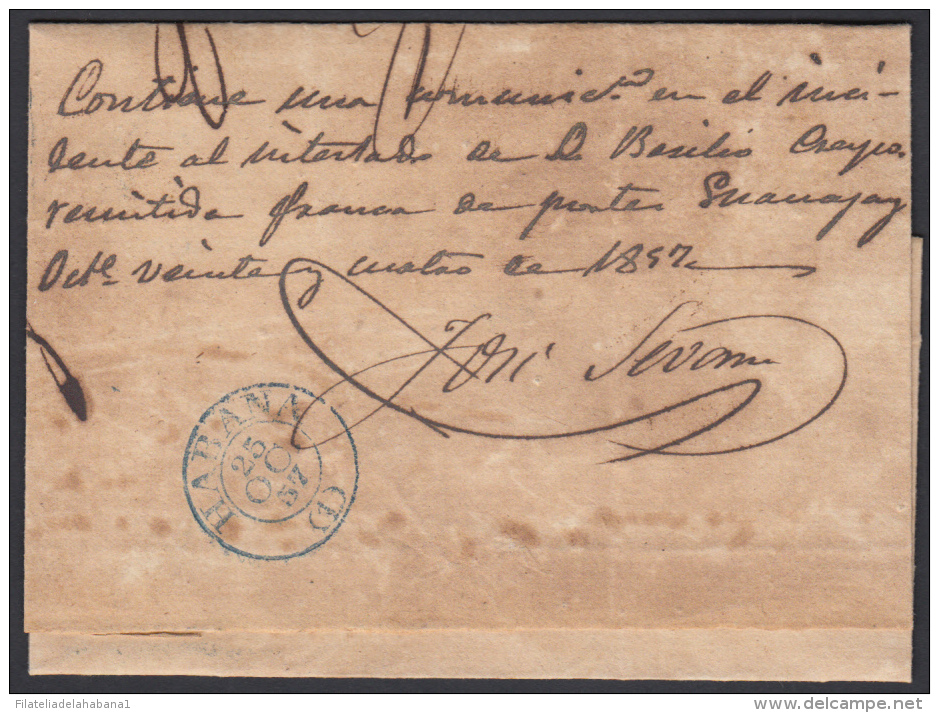 Contiene una comunicn. en el inci-
dente al intestado de D Basilio Crespo.
remitida franca de porte Guanajay
Octe. veinte y cuatro de 1857
José
HABANA (1)
25
OC
57
Filateliadelahabana1
delcampe.net